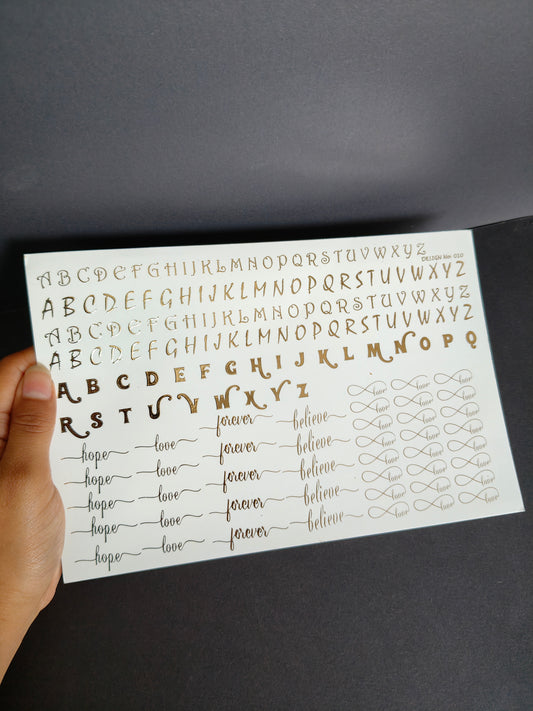 A B C D E F G H I J K L M N O P Q R S T U V W X Y Z
DESIGN No: 010
A B C D E F G H I J K L M N O P Q R S T U V W X Y Z
A B C D E F G H I J K L M N O P Q R S T U V W X Y Z
A B C D E F G H I J K L M N O P Q R S T U V W X Y Z
A B C D E F G H I J K L M N O P Q
R S T U V W X Y Z
hope love forever believe
hope love forever believe
hope love forever believe
hope love forever believe
hope love forever believe
love love love
love love love
love love love
love love love
love love love
love love love
love love love
love love love